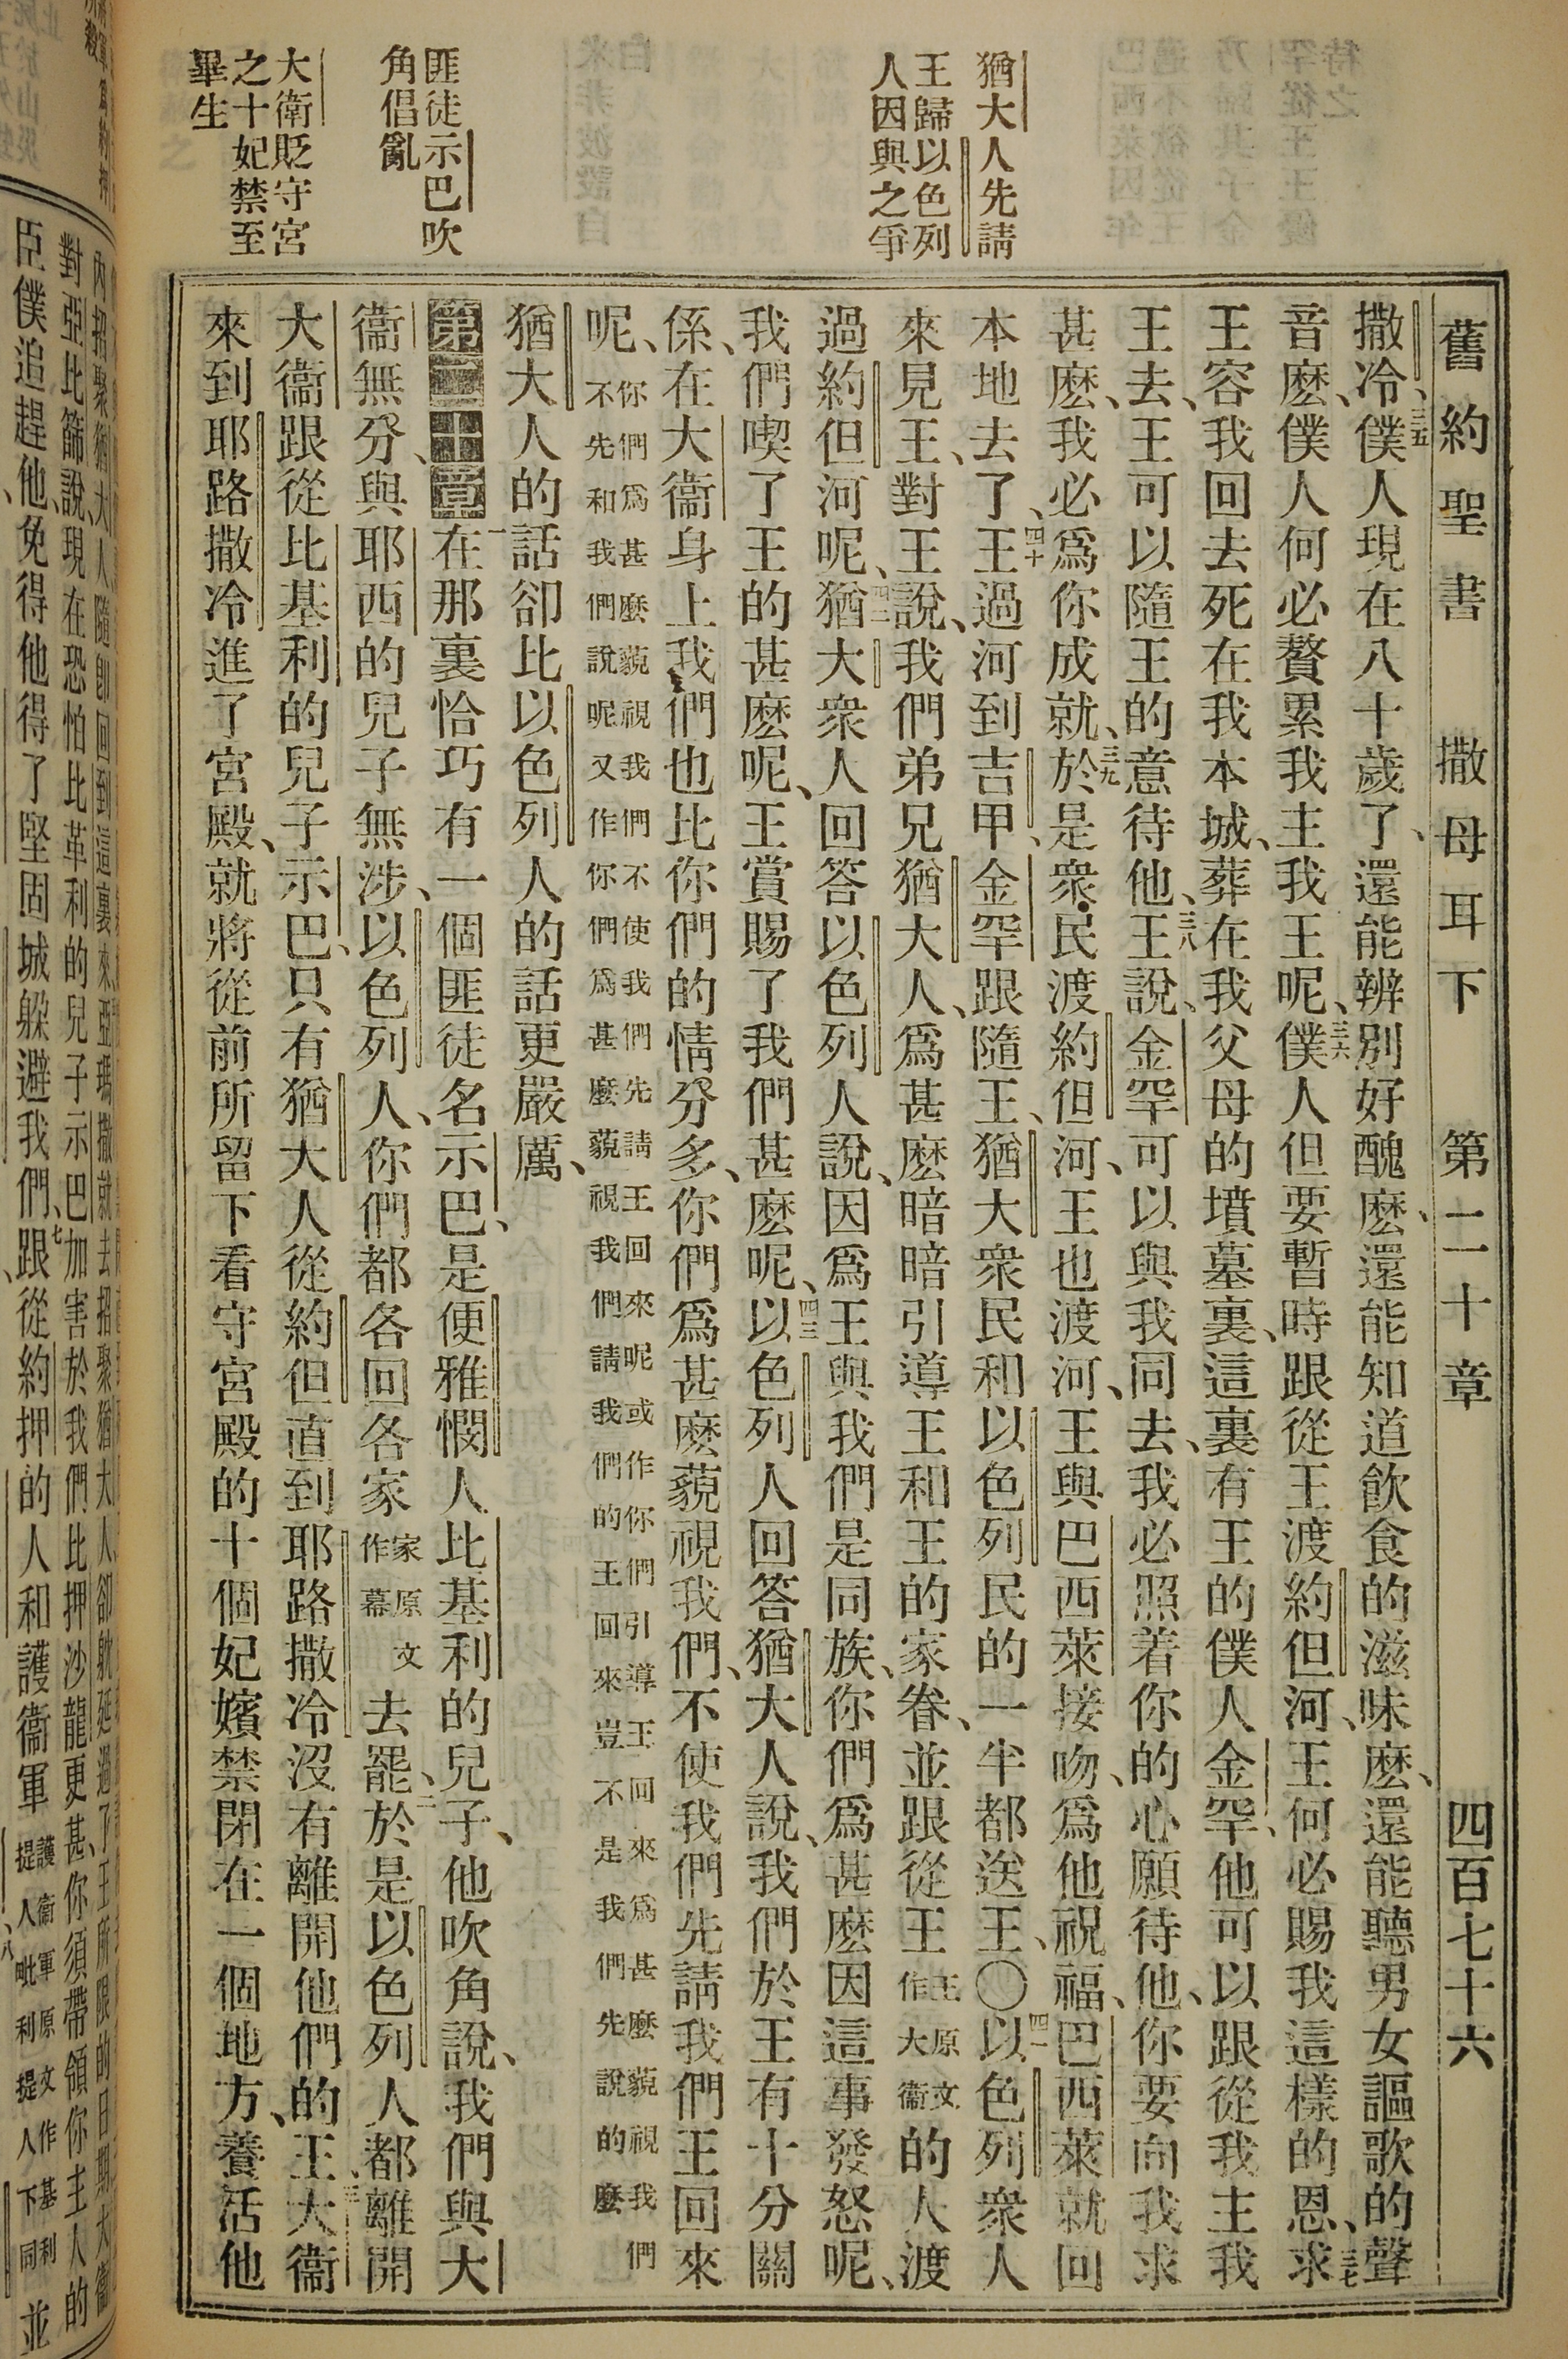 舊約聖書　撒母耳下　第二十章　四百七十六
猶大人先請
王歸以色列
人因與之爭
匪徒示巴吹
角倡亂
大衛貶守宮
之十妃禁至
畢生
撒冷、三五僕人現在八十歲了、還能辨別好醜麽、還能知道飮食的滋味麽、還能聽男女謳歌的聲
音麽、僕人何必贅累我主我王呢、三六僕人但要暫時跟從王渡約但河、王何必賜我這樣的恩、三七求
王容我回去死在我本城、葬在我父母的墳墓裏、這裏有王的僕人金罕、他可以跟從我主我
王去、王可以隨王的意待他、三八王說、金罕可以與我同去、我必照着你的心願待他、你要向我求
甚麽、我必爲你成就、三九於是衆民渡約但河、王也渡河、王與巴西萊接吻、爲他祝福、巴西萊就回
本地去了、四十王過河到吉甲、金罕跟隨王、猶大衆民和以色列民的一半都送王、〇四一以色列衆人
來見王、對王說、我們弟兄猶大人、爲甚麽暗暗引導王和王的家眷、並跟從王王原文作大衞的人渡
過約但河呢、四二猶大衆人回答以色列人說、因爲王與我們是同族、你們爲甚麽因這事發怒呢、
我們喫了王的甚麽呢、王賞賜了我們甚麽呢、四三以色列人回答猶大人說、我們於王有十分關
係、在大衞身上我們也比你們的情分多、你們爲甚麽藐視我們、不使我們先請我們王回來
呢、你們爲甚麽藐視我們不使我們先請王回來呢或作你們引導王回來爲甚麽藐視我們不先和我們說呢又作你們爲甚麽藐視我們請我們的王回來豈不是我們先說的麽
猶大人的話卻比以色列人的話更嚴厲、
第二十章 一在那裏恰巧有一個匪徒名示巴、是便雅憫人比基利的兒子、他吹角說、我們與大
衞無分、與耶西的兒子無涉、以色列人、你們都各回各家家原文作幕去罷、二於是以色列人都離開
大衞跟從比基利的兒子示巴、只有猶大人從約但直到耶路撒冷沒有離開他們的王、三大衞
來到耶路撒冷進了宮殿、就將從前所留下看守宮殿的十個妃嬪禁閉在一個地方、養活他
對亞比篩說、現在恐怕比革利的兒子示巴加害於我們比押沙龍更甚、你須帶領你主人的
臣僕追趕他、免得他得了堅固城躱避我們、七跟從約押的人和護衞軍護衞軍原文作基利提人毗利提人下同、八並